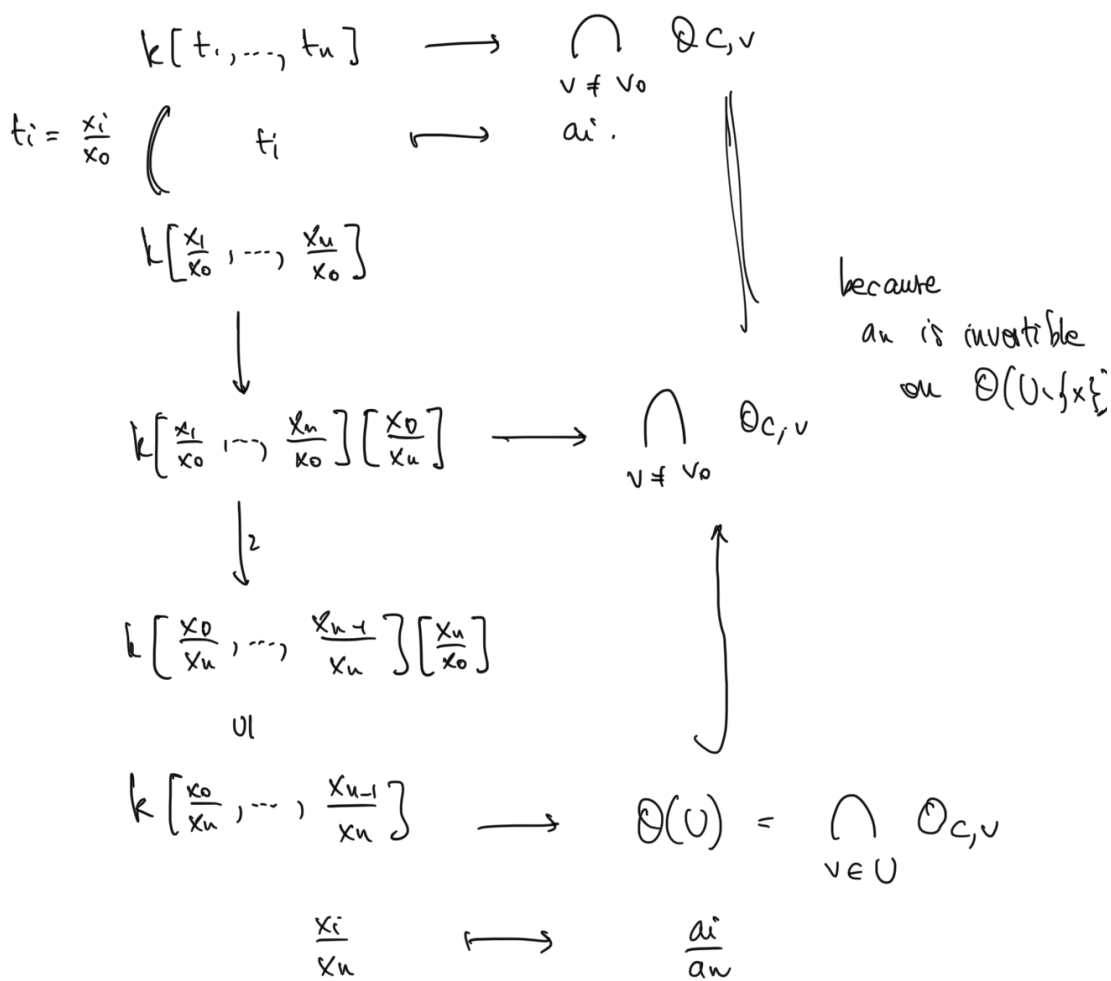 k[t₁,...,tₙ] ⟶ ⋂_{v≠v₀} 𝒪_{C,v}
tᵢ = xᵢ/x₀ ( tᵢ ⟼ aᵢ.
k[x₁/x₀,...,xₙ/x₀]
because
aₙ is invertible
on 𝒪(U\{x})
k[x₁/x₀,...,xₙ/x₀][x₀/xₙ] ⟶ ⋂_{v≠v₀} 𝒪_{C,v}
↓≀
k[x₀/xₙ,...,xₙ₋₁/xₙ][xₙ/x₀]
∪|
k[x₀/xₙ,...,xₙ₋₁/xₙ] ⟶ 𝒪(U) = ⋂_{v∈U} 𝒪_{C,v}
xᵢ/xₙ ⟼ aᵢ/aₙ